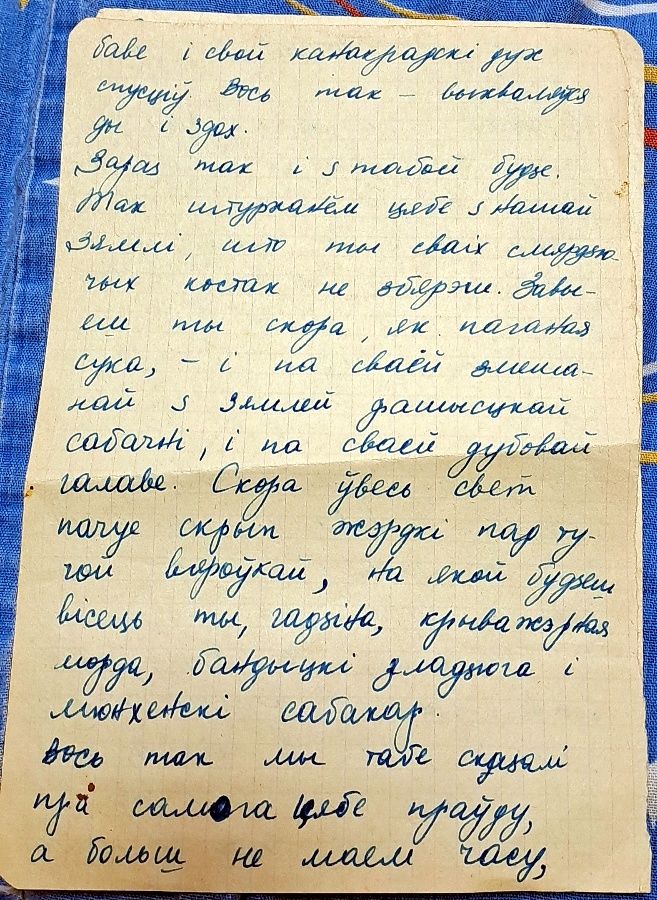 баве і свой канакрадскі дух
спусціў. Вось так – выхваляўся
ды і здох.
Зараз так і з табой будзе.
Так штурханём цябе з нашай
зямлі, што ты сваіх смярдзю-
чых костак не збярэш. Завы-
еш ты скора, як паганая
сука, – і па сваёй змеша-
най з зямлей фашысцкай
сабачні, і па сваей дубовай
галаве. Скора ўвесь свет
пачуе скрып жэрдкі пад ту-
гой вяроўкай, на якой будзеш
вісець ты, гадзіна, крыважэрная
морда, бандыцкі зладзюга і
мюнхенскі сабакар.
Вось так мы табе сказалі
пра самога цябе праўду,
а больш не маем часу,